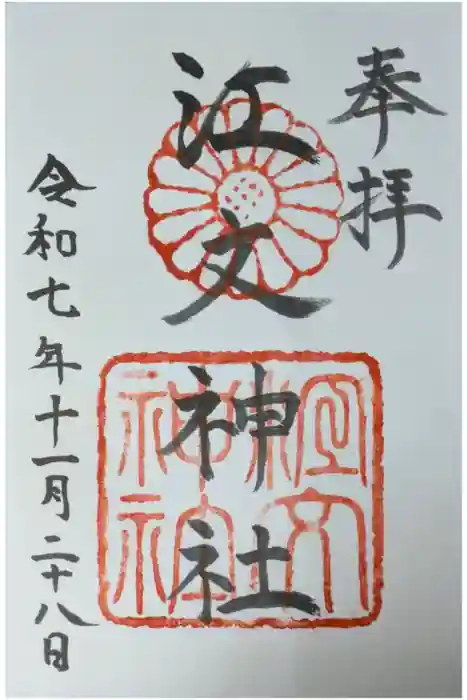 奉拝
江文神社
令和七年十一月二十八日